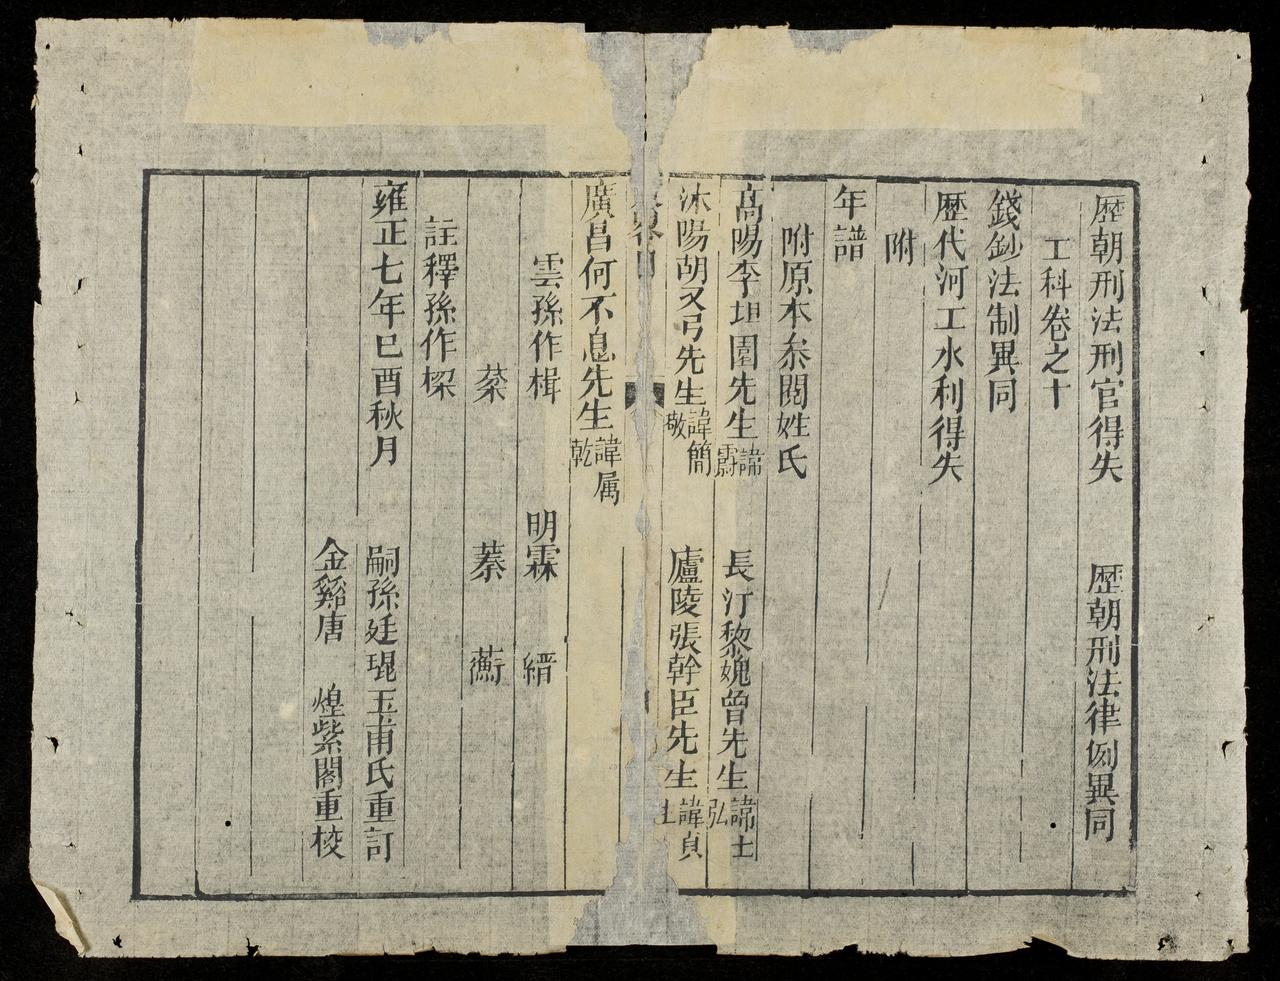 歷朝刑法刑官得失　歷朝刑法律例異同
工科卷之十
錢鈔法制異同
歷代河工水利得失
附
年譜
附原本叅閱姓氏
高陽李坦園先生諱霨　長汀黎媿曾先生諱士弘
沭陽胡又弓先生諱簡敬　廬陵張幹臣先生諱貞
廣昌何不息先生諱属乾
雲孫作楫　明霖　縉
蔡　蓁　薷
註釋孫作樑
雍正七年巳酉秋月　嗣孫廷琨玉甫氏重訂
金谿唐　煌紫閣重梭